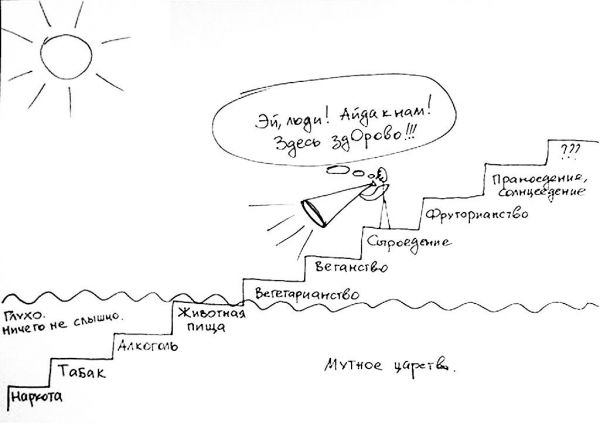 Эй, люди! Айда к нам!
Здесь здОрово!!!
???
Праноедение,
солнцеедение
Фруторианство
Сыроедение
Веганство
Вегетарианство
Животная
пища
Глухо.
Ничего не слышно.
Алкоголь
Мутное царство.
Табак
Наркота